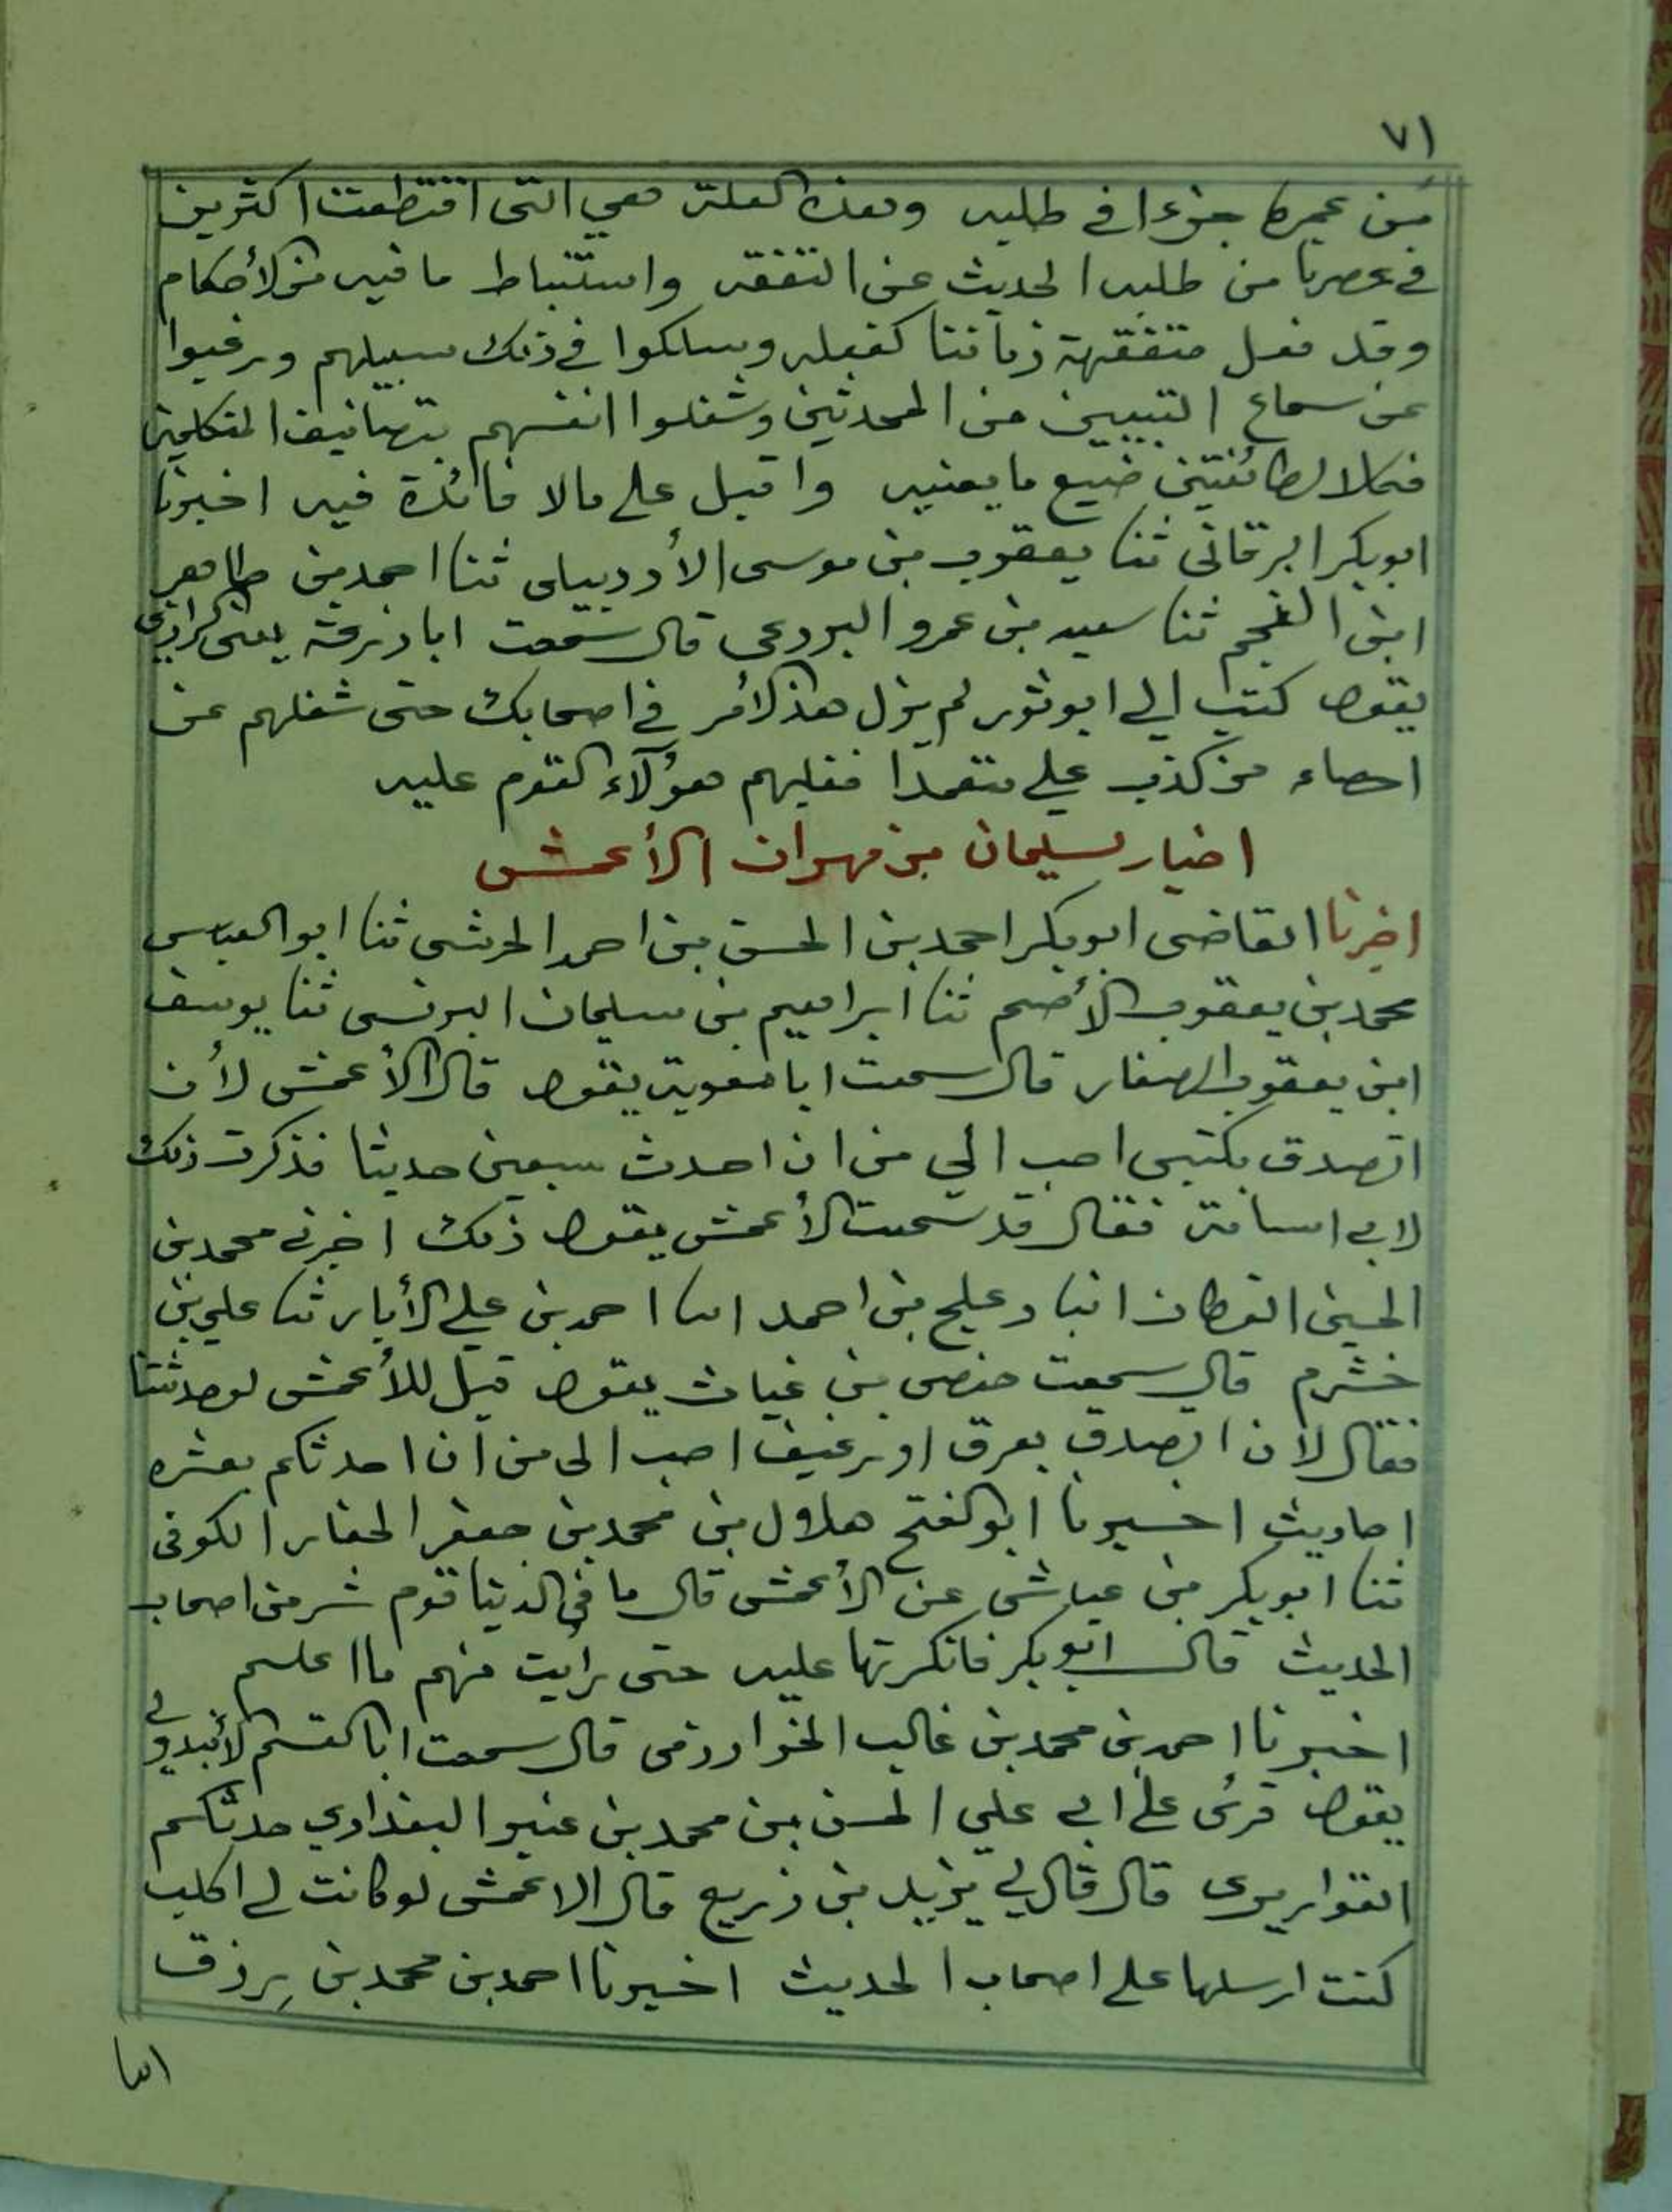 ٧١
من عمره جزءا في طلبه وهذه العلة هي التي اقتطعت اكثرين
في عصرنا من طلبه الحديث عن التفقه واستنباط ما فيه من الأحكام
وقد فعل متفقهة زماننا كفعله وسلكوا في ذلك سبيلهم ورغبوا
عن سماع السنن من المحدثين وشغلوا انفسهم بتصانيف المتكلمين
فكلا الطائفتين ضيع ما يعنيه واقبل على مالا فائدة فيه اخبرنا
ابو بكر البرقانى ثنا يعقوب بن موسى الأردبيلى ثنا احمد بن طاهر
ابن النجم ثنا سعيد بن عمرو البردعى قال سمعت ابا زرعة يعنى الرازي
يقول كتب إلي ابو ثور لم يزل هذا الأمر في اصحابك حتى شغلهم عن
احصاء من كذب علي متعمدا فغلبهم هؤلآء القوم عليه
اخبار سليمان بن مهران الأعمش
اخبرنا القاضى ابو بكر احمد بن الحسن بن احمد الحرشى ثنا ابو العباس
محمد بن يعقوب الأصم ثنا ابراهيم بن سليمان البرنسى ثنا يوسف
ابن يعقوب الصفار قال سمعت ابا معوية يقول قال الأعمش لأن
اتصدق بكتبى احب الي من ان احدث سبعين حديثا فذكرت ذلك
لابي اسامة فقال قد سمعت الأعمش يقول ذلك اخبرني محمد بن
الحسين القطان انبا دعلج بن احمد انا احمد بن علي الأبار ثنا علي بن
خشرم قال سمعت حفص بن غياث يقول قيل للأعمش لو حدثتنا
فقال لان اتصدق بعرق او رغيف احب الى من ان احدثكم بعشره
احاديث اخبرنا ابو الفتح هلال بن محمد بن جعفر الحفار الكوفى
ثنا ابو بكر بن عياش عن الأعمش قال ما في الدنيا قوم شر من اصحاب
الحديث قال ابو بكر فانكرتها عليه حتى رأيت منهم ما اعلم
اخبرنا احمد بن محمد بن غالب الخوارزمى قال سمعت ابا القسم الأبندوني
يقول قرئ على ابي علي الحسن بن محمد بن عنبر البغدادي حدثكم
القواريرى قال قال لي يزيد بن زريع قال الاعمش لو كانت لي اكلب
كنت ارسلها على اصحاب الحديث اخبرنا احمد بن محمد بن رزق
انا